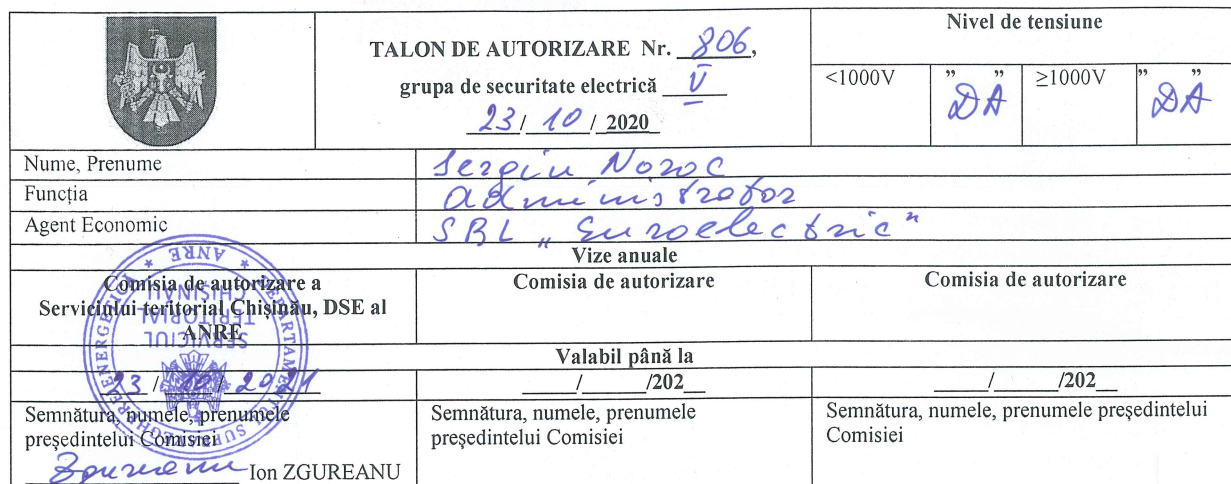 TALON DE AUTORIZARE Nr. 806,
grupa de securitate electrică V
23/ 10 / 2020
Nivel de tensiune
<1000V " DA " ≥1000V " DA "
Nume, Prenume Sergiu Noroc
Funcția administrator
Agent Economic SRL „Euroelectric"
Vize anuale
Comisia de autorizare a
Serviciului teritorial Chișinău, DSE al
ANRE
Comisia de autorizare
Comisia de autorizare
Valabil până la
23 / 10 / 2021
____/______/202__
____/______/202__
Semnătura, numele, prenumele
președintelui Comisiei
Zgureanu Ion ZGUREANU
Semnătura, numele, prenumele
președintelui Comisiei
Semnătura, numele, prenumele președintelui
Comisiei
* ANRE * DEPARTAMENT SUPRAVEGHERE ENERGETICĂ
SERVICIUL
TERITORIAL
CHIȘINĂU